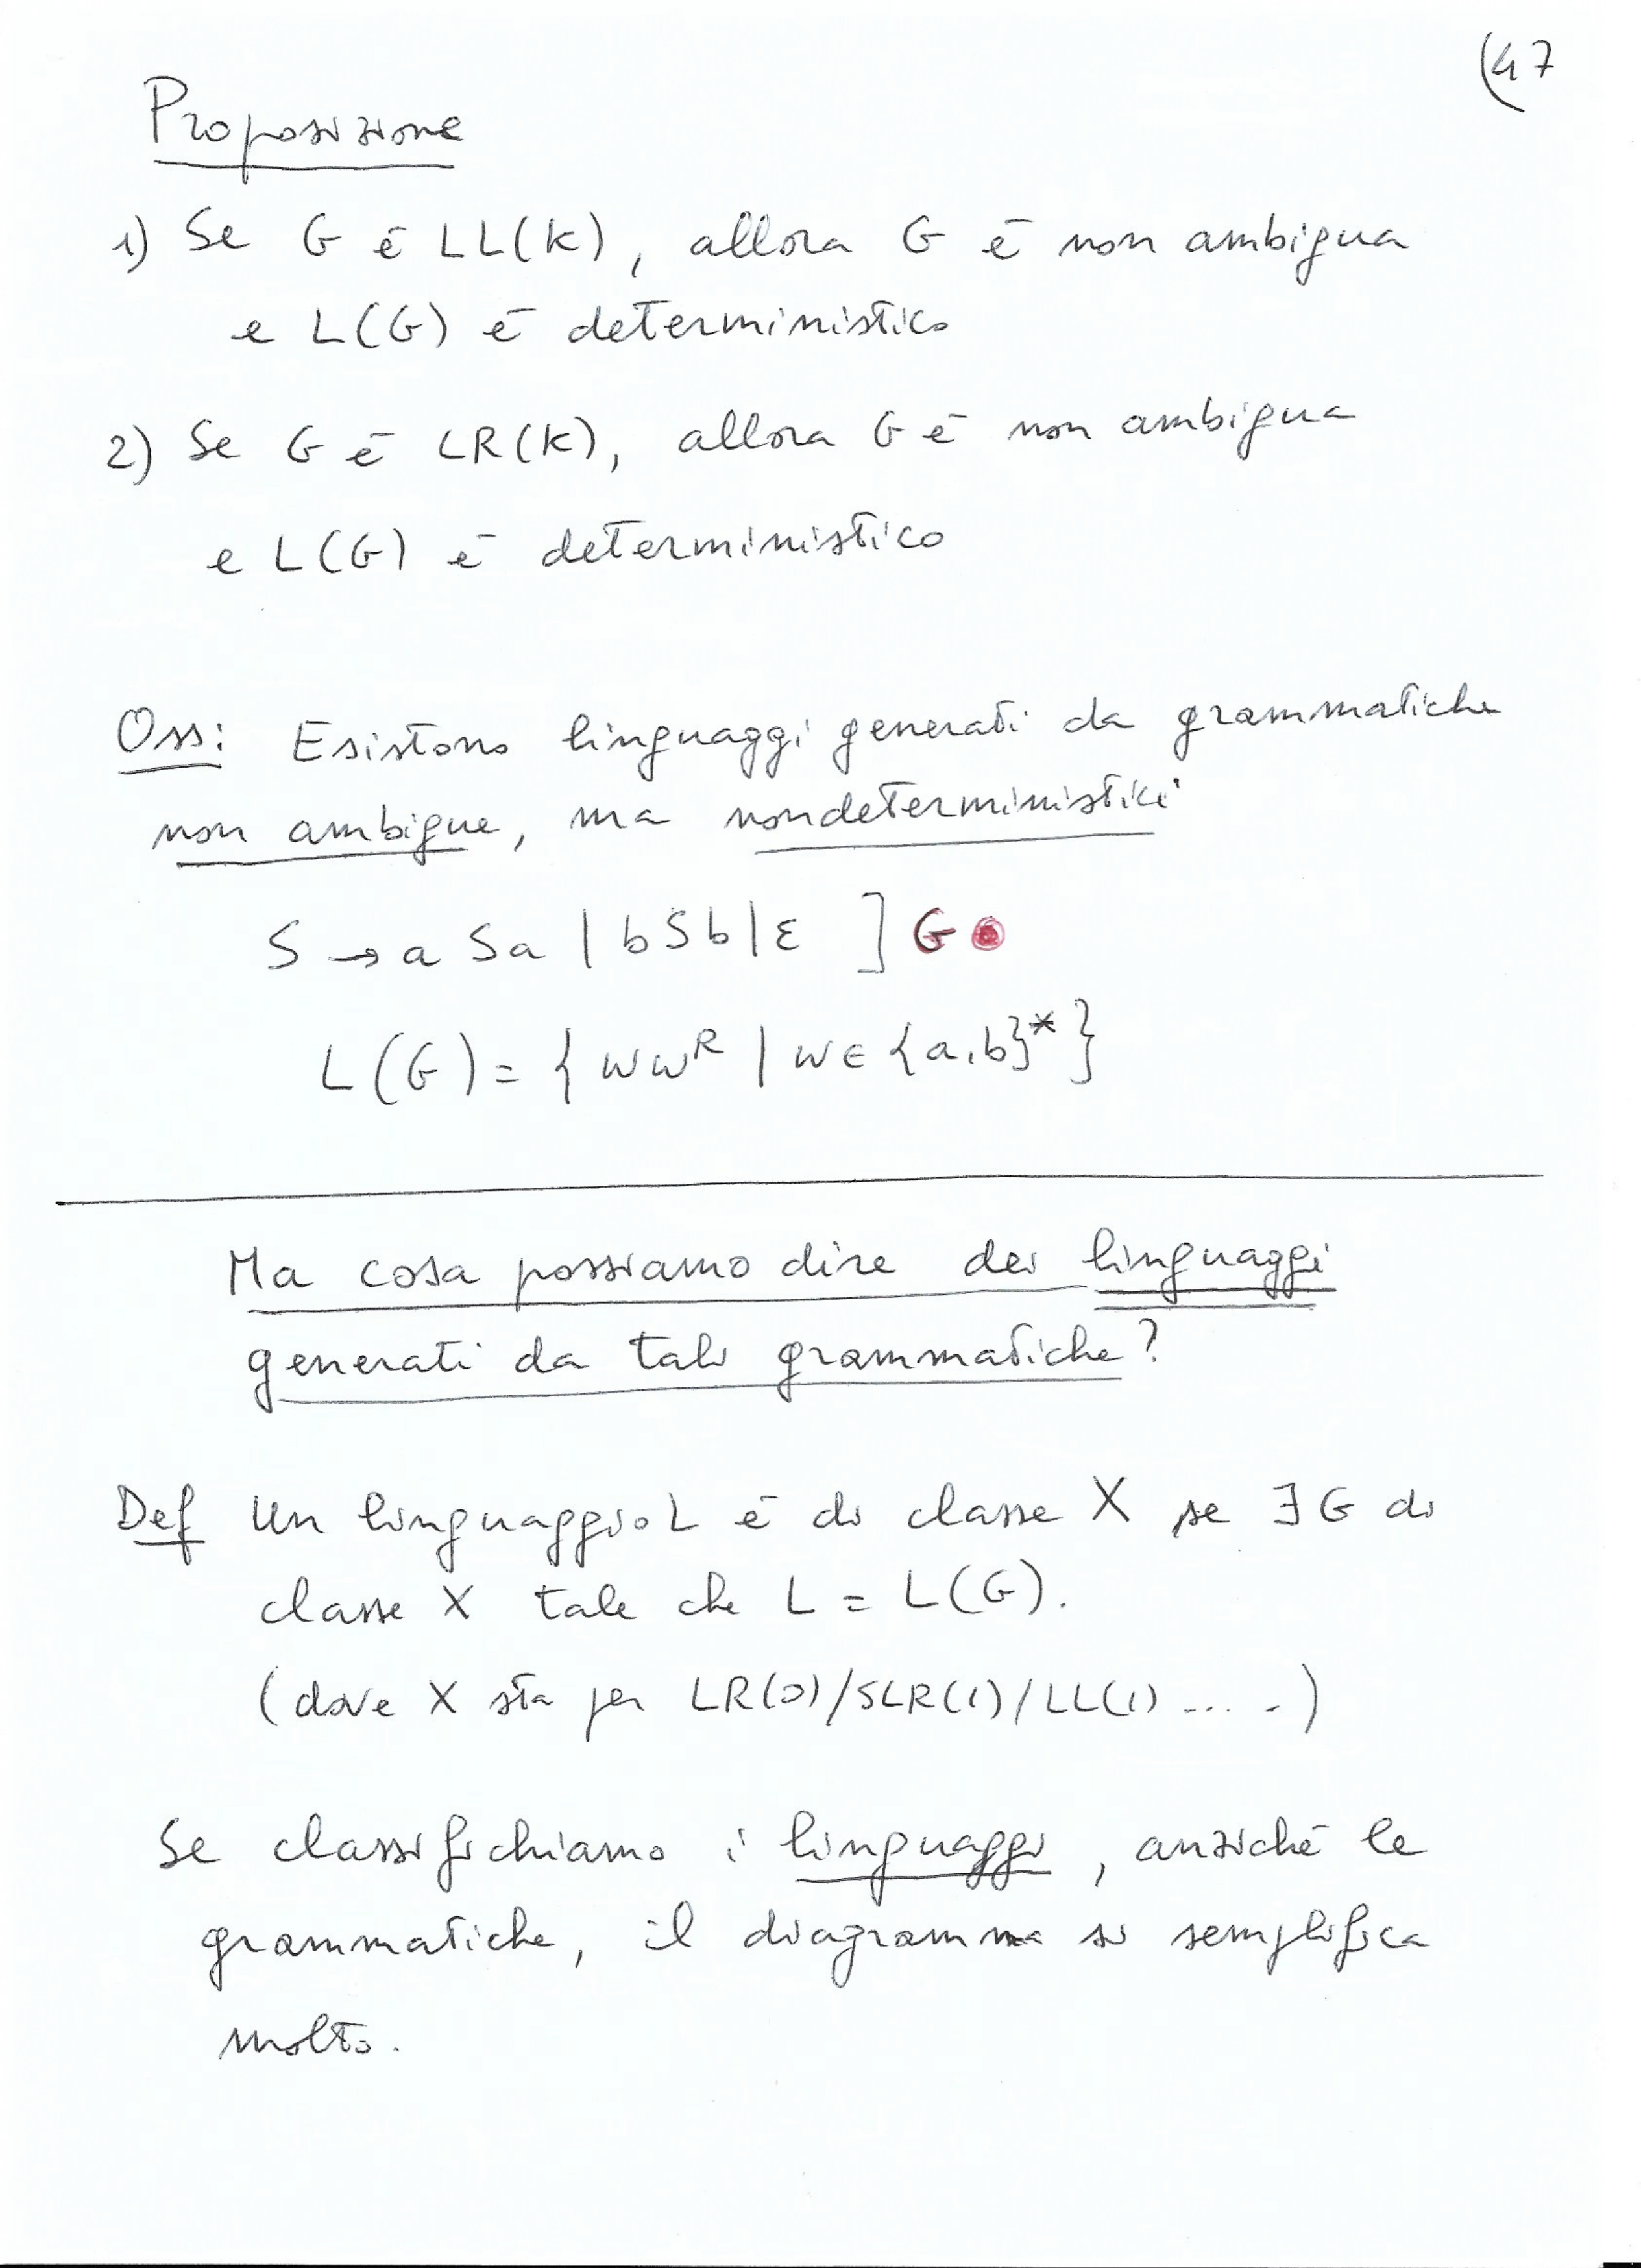 (47
Proposizione
1) Se G è LL(k), allora G è non ambigua
e L(G) è deterministico
2) Se G è LR(k), allora G è non ambigua
e L(G) è deterministico
Oss: Esistono linguaggi generati da grammatiche
non ambigue, ma nondeterministici
S → a S a | b S b | ε ] G
L(G) = { w w^R | w ∈ {a,b}* }
Ma cosa possiamo dire dei linguaggi
generati da tali grammatiche?
Def Un linguaggio L è di classe X se ∃ G di
classe X tale che L = L(G).
(dove X sta per LR(0)/SLR(1)/LL(1) .... .)
Se classifichiamo i linguaggi, anziché le
grammatiche, il diagramma si semplifica
molto.